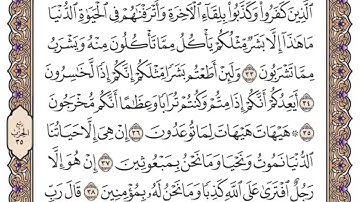 ٱلَّذِينَ كَفَرُوا۟ وَكَذَّبُوا۟ بِلِقَآءِ ٱلْءَاخِرَةِ وَأَتْرَفْنَٰهُمْ فِى ٱلْحَيَوٰةِ ٱلدُّنْيَا
مَا هَٰذَآ إِلَّا بَشَرٌ مِّثْلُكُمْ يَأْكُلُ مِمَّا تَأْكُلُونَ مِنْهُ وَيَشْرَبُ
مِمَّا تَشْرَبُونَ ٣٣ وَلَئِنْ أَطَعْتُم بَشَرًا مِّثْلَكُمْ إِنَّكُمْ إِذًا لَّخَٰسِرُونَ
٣٤ أَيَعِدُكُمْ أَنَّكُمْ إِذَا مِتُّمْ وَكُنتُمْ تُرَابًا وَعِظَٰمًا أَنَّكُم مُّخْرَجُونَ
٣٥ ۞ هَيْهَاتَ هَيْهَاتَ لِمَا تُوعَدُونَ ٣٦ إِنْ هِىَ إِلَّا حَيَاتُنَا
ٱلدُّنْيَا نَمُوتُ وَنَحْيَا وَمَا نَحْنُ بِمَبْعُوثِينَ ٣٧ إِنْ هُوَ إِلَّا
رَجُلٌ ٱفْتَرَىٰ عَلَى ٱللَّهِ كَذِبًا وَمَا نَحْنُ لَهُۥ بِمُؤْمِنِينَ ٣٨ قَالَ رَبِّ
ربع
الحزب
٣٥